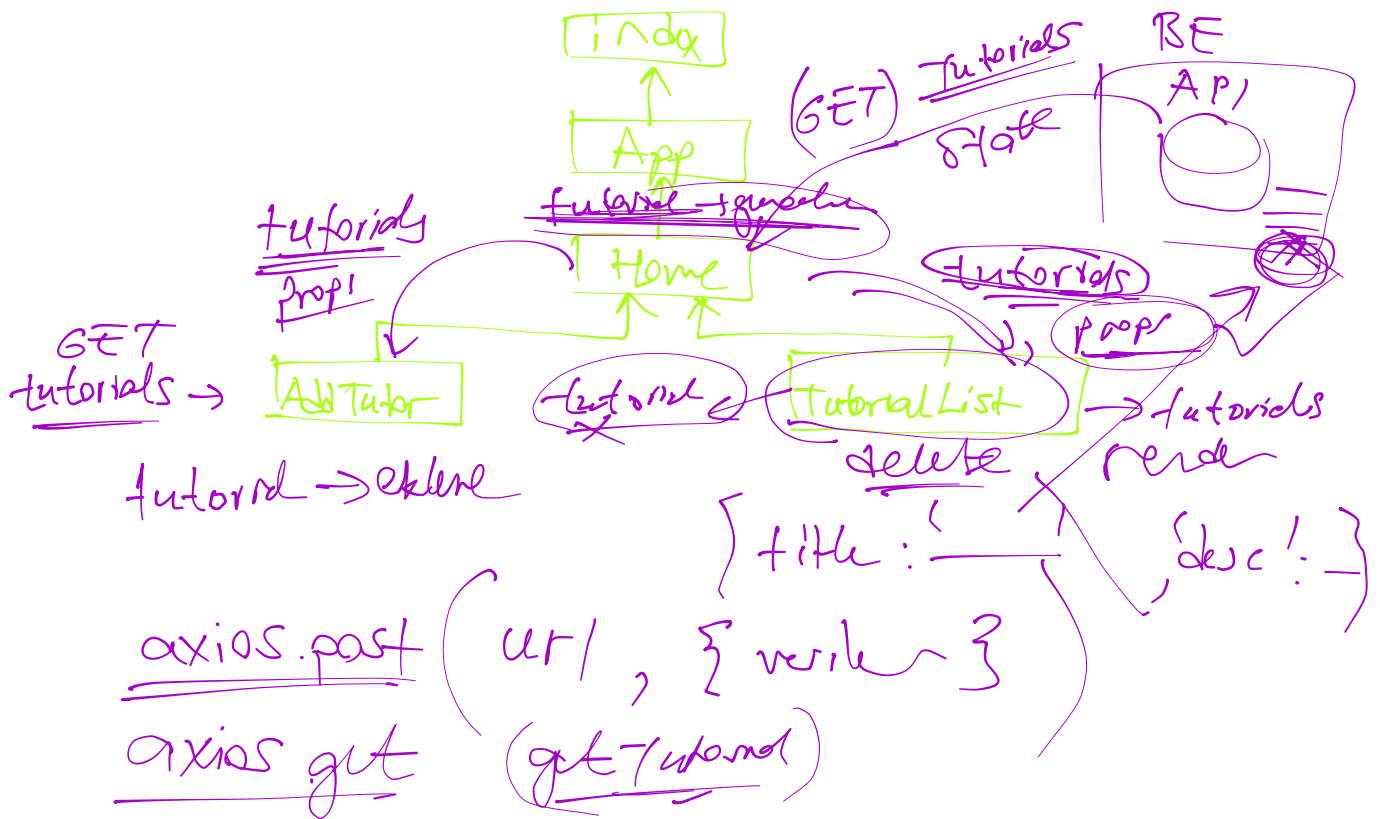 index
BE
Tutorials
(GET)
API
App
state
tutorials
props
Home
tutorials
props
GET
tutorials →
AddTutor
tutorial
TutorialList
→ tutorials
render
delete
tutorial → ekleme
{ title : '
, desc :
axios.post ( url , { veriler } )
axios.get (getTutorial)